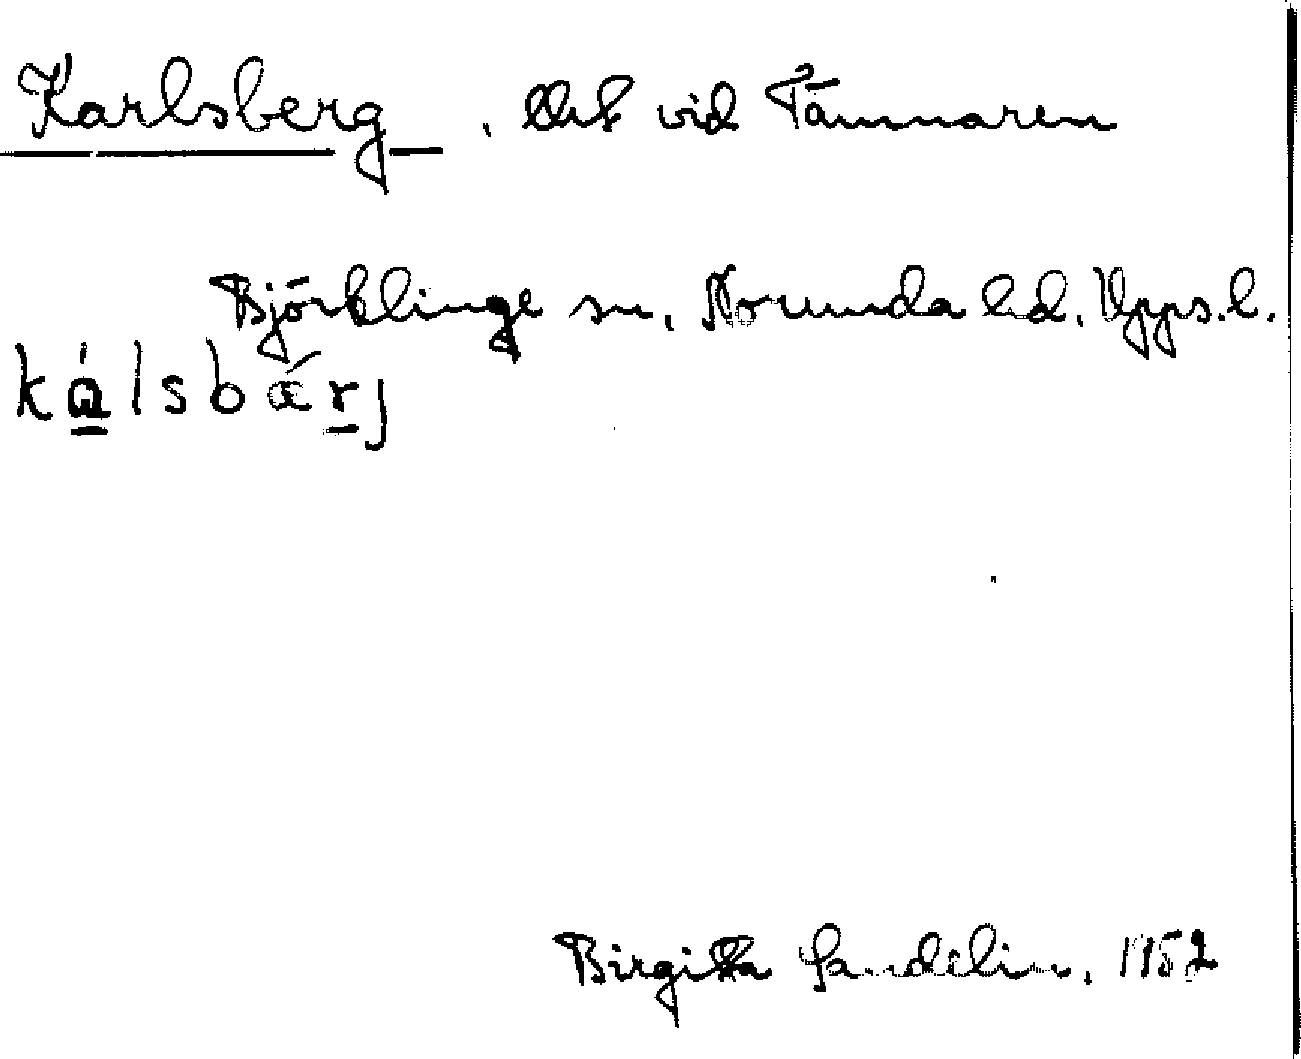 Karlsberg, tht vid Tämnaren
Björklinge sn, Norunda hd. Upps. l.
kálsbǽrj
Birgitta Sandelin, 1952